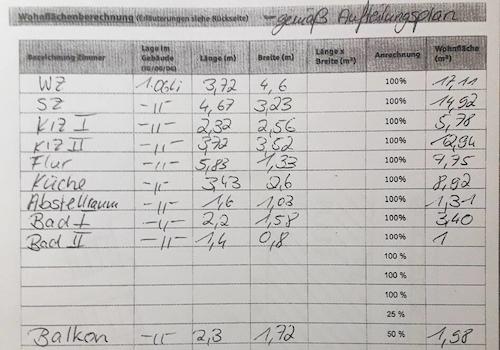 Wohnflächenberechnung (Erläuterungen siehe Rückseite) gemäß Aufteilungsplan
Bezeichnung Zimmer Lage im Gebäude Länge (m) Breite (m) Länge x Breite (m²) Anrechnung Wohnfläche (m²)
WZ 1.OGLi 3,72 4,6 100% 17,11
SZ -"- 4,67 3,23 100% 14,92
KIZ I -"- 2,32 2,56 100% 5,78
KIZ II -"- 3,72 3,52 100% 12,94
Flur -"- 5,83 1,33 100% 7,75
Küche -"- 3,43 2,6 100% 8,92
Abstellraum -"- 1,6 1,03 100% 1,31
Bad I -"- 2,2 1,58 100% 3,40
Bad II -"- 1,4 0,8 100% 1
100 %
100 %
100 %
25 %
Balkon -"- 2,3 1,72 50 % 1,98